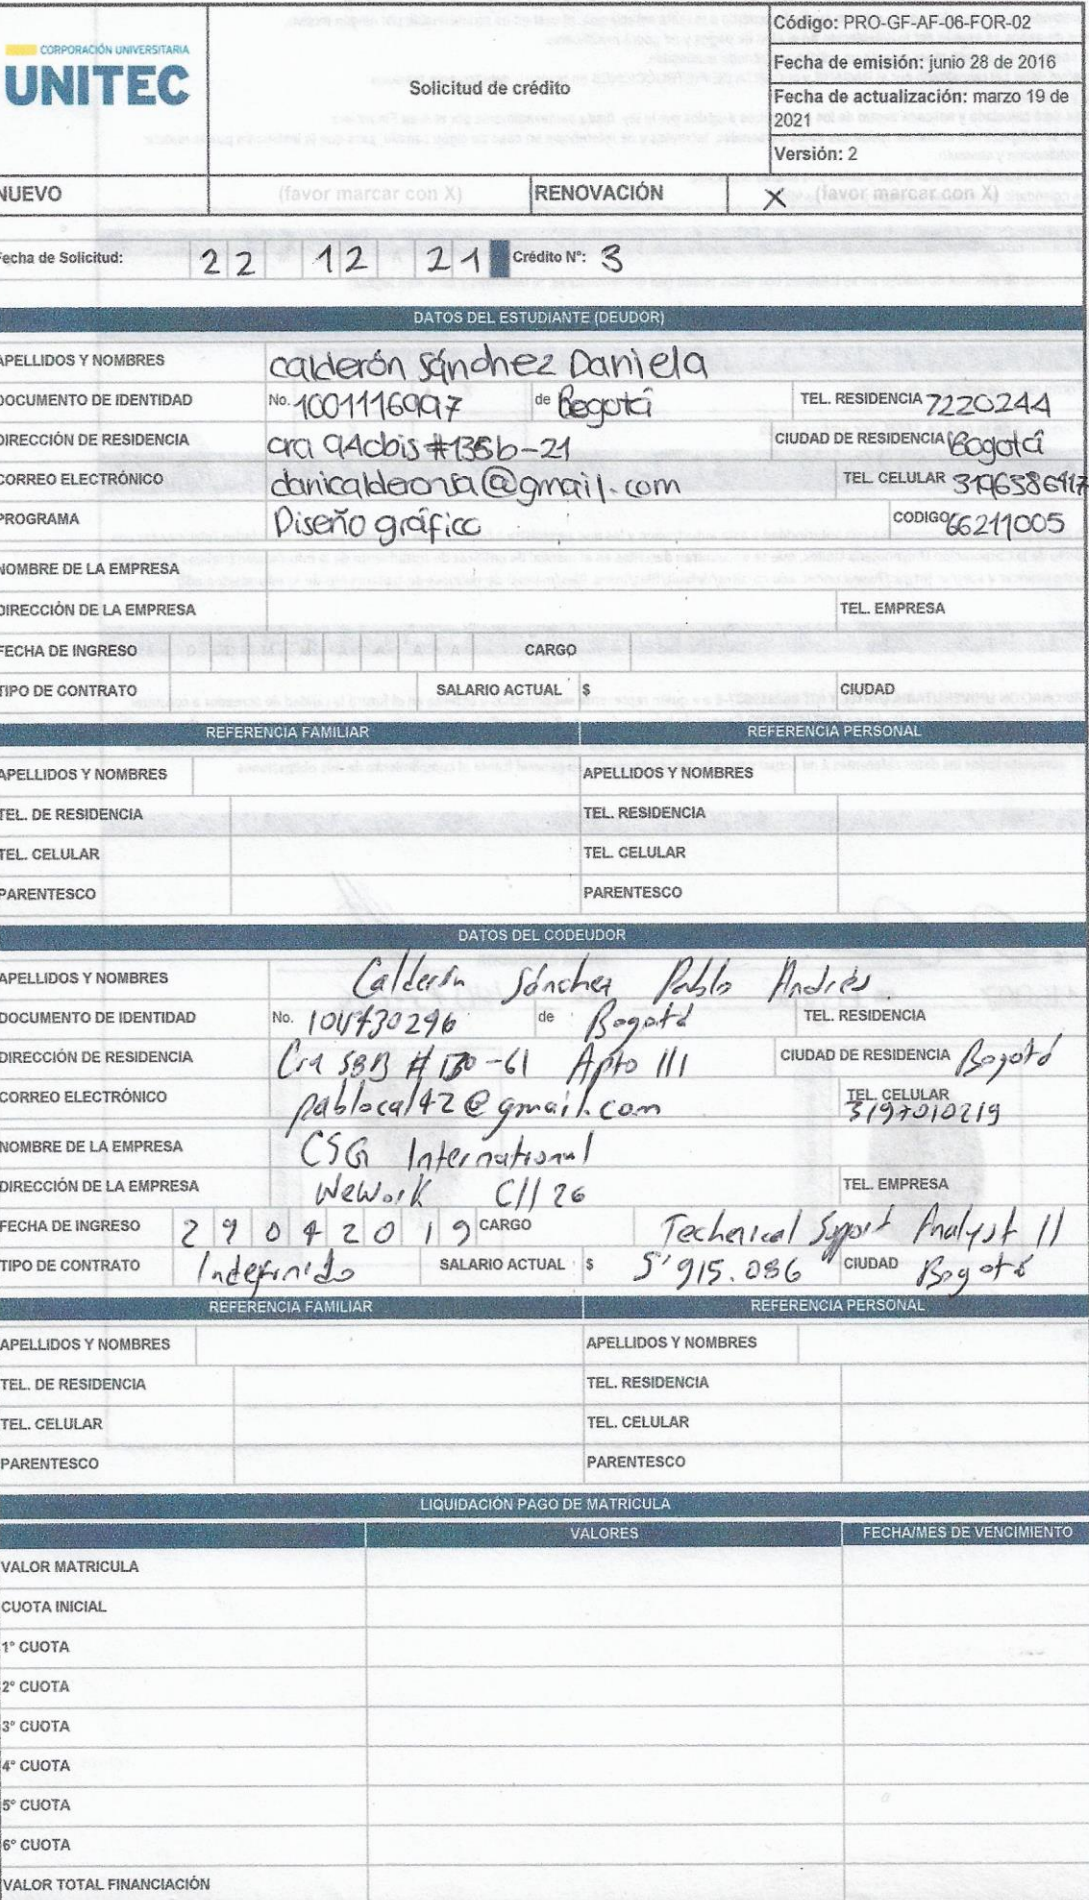 CORPORACIÓN UNIVERSITARIA
UNITEC
Solicitud de crédito
Código: PRO-GF-AF-06-FOR-02
Fecha de emisión: junio 28 de 2016
Fecha de actualización: marzo 19 de
2021
Versión: 2
NUEVO (favor marcar con X) RENOVACIÓN X (favor marcar con X)
Fecha de Solicitud: 22 12 21 Crédito N°: 3
DATOS DEL ESTUDIANTE (DEUDOR)
APELLIDOS Y NOMBRES Calderón Sánchez Daniela
DOCUMENTO DE IDENTIDAD No. 1001116997 de Bogotá TEL. RESIDENCIA 7220244
DIRECCIÓN DE RESIDENCIA cra 94cbis #136b-21 CIUDAD DE RESIDENCIA Bogotá
CORREO ELECTRÓNICO danicalderonsa@gmail.com TEL. CELULAR 3196386917
PROGRAMA Diseño gráfico CODIGO 66211005
NOMBRE DE LA EMPRESA
DIRECCIÓN DE LA EMPRESA TEL. EMPRESA
FECHA DE INGRESO CARGO
TIPO DE CONTRATO SALARIO ACTUAL $ CIUDAD
REFERENCIA FAMILIAR REFERENCIA PERSONAL
APELLIDOS Y NOMBRES APELLIDOS Y NOMBRES
TEL. DE RESIDENCIA TEL. RESIDENCIA
TEL. CELULAR TEL. CELULAR
PARENTESCO PARENTESCO
DATOS DEL CODEUDOR
APELLIDOS Y NOMBRES Calderón Sánchez Pablo Andrés.
DOCUMENTO DE IDENTIDAD No. 1014730296 de Bogotá TEL. RESIDENCIA
DIRECCIÓN DE RESIDENCIA Cra 58B # 130-61 Apto 111 CIUDAD DE RESIDENCIA Bogotá
CORREO ELECTRÓNICO pablocal42@gmail.com TEL. CELULAR 3197010219
NOMBRE DE LA EMPRESA CSG International
DIRECCIÓN DE LA EMPRESA WeWork Cll 26 TEL. EMPRESA
FECHA DE INGRESO 29042019 CARGO Techenical Support Analyst II
TIPO DE CONTRATO Indefinido SALARIO ACTUAL $ 5'915.086 CIUDAD Bogotá
REFERENCIA FAMILIAR REFERENCIA PERSONAL
APELLIDOS Y NOMBRES APELLIDOS Y NOMBRES
TEL. DE RESIDENCIA TEL. RESIDENCIA
TEL. CELULAR TEL. CELULAR
PARENTESCO PARENTESCO
LIQUIDACIÓN PAGO DE MATRÍCULA
VALORES FECHA/MES DE VENCIMIENTO
VALOR MATRICULA
CUOTA INICIAL
1° CUOTA
2° CUOTA
3° CUOTA
4° CUOTA
5° CUOTA
6° CUOTA
VALOR TOTAL FINANCIACIÓN